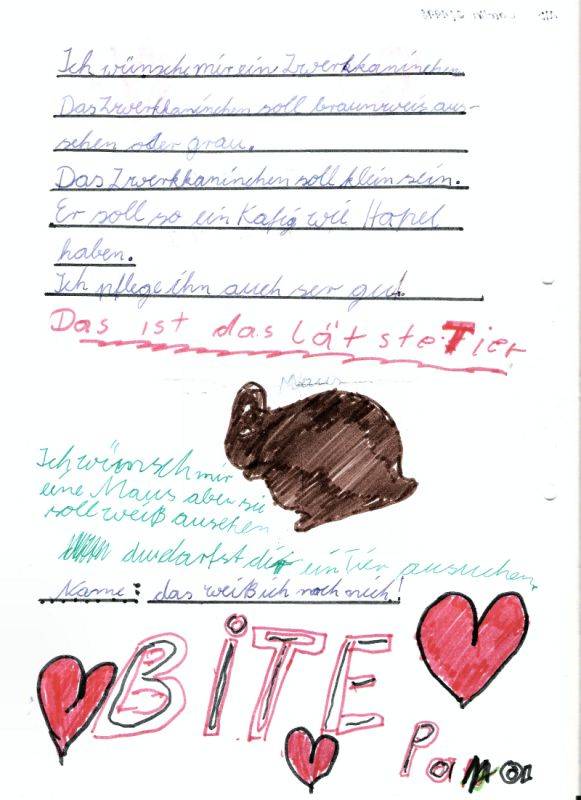 Ich wünsche mir ein Zwerkkaninchen
Das Zwerkkaninchen soll braunweis aus-
sehen oder grau.
Das Zwerkkaninchen soll klein sein.
Er soll so ein Kafig wie Hapel
haben.
Ich pflege ihn auch ser gut.
Das ist das lätste Tier
Maus
Ich wünsch mir
eine Maus aber sie
soll weiß aussehen
du darfst dir ein Tier aussuchen.
Name: das weiß ich noch nich!
BITE